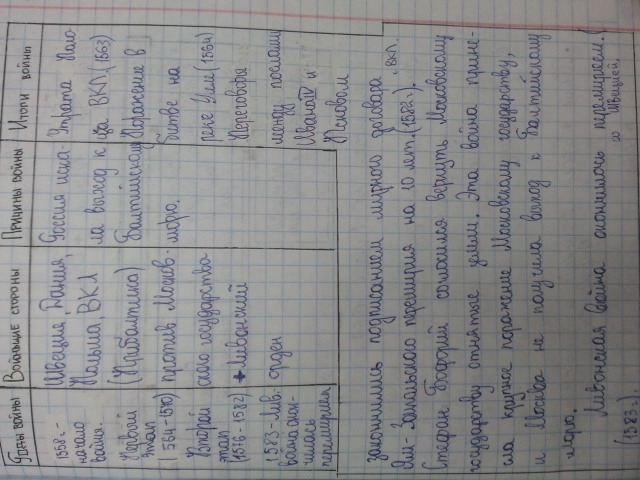 Годы войны
Воюющие стороны
Причины войны
Итоги войны
1558г.-
начало
войны.
Первый
этап
(1564-1570)
Второй
этап
(1576-1582)
1583-Лив.
война окон-
чилась
перемирием
Швеция, Дания,
Польша, ВКЛ
(Прибалтика)
против Москов-
ского государства
+ Ливонский
орден
Россия иска-
ла выход к
Балтийскому
морю.
Утрата Поло-
цка ВКЛ.(1563)
Поражение в
битве на
реке Улле(1564)
Переговоры
между послами
Ивана IV и
Псковом
закончились подписанием мирного договора
Ям-Запольского перемирия на 10 лет.(1582г.). ВКЛ.
Стефан Баторий согласился вернуть Московскому
государству отнятые земли. Эта война прине-
сла крупное поражение Московскому государству,
и Москва не получила выход к Балтийскому
морю.
Ливонская война окончилось перемирием
со Швецией.
(1583г.)